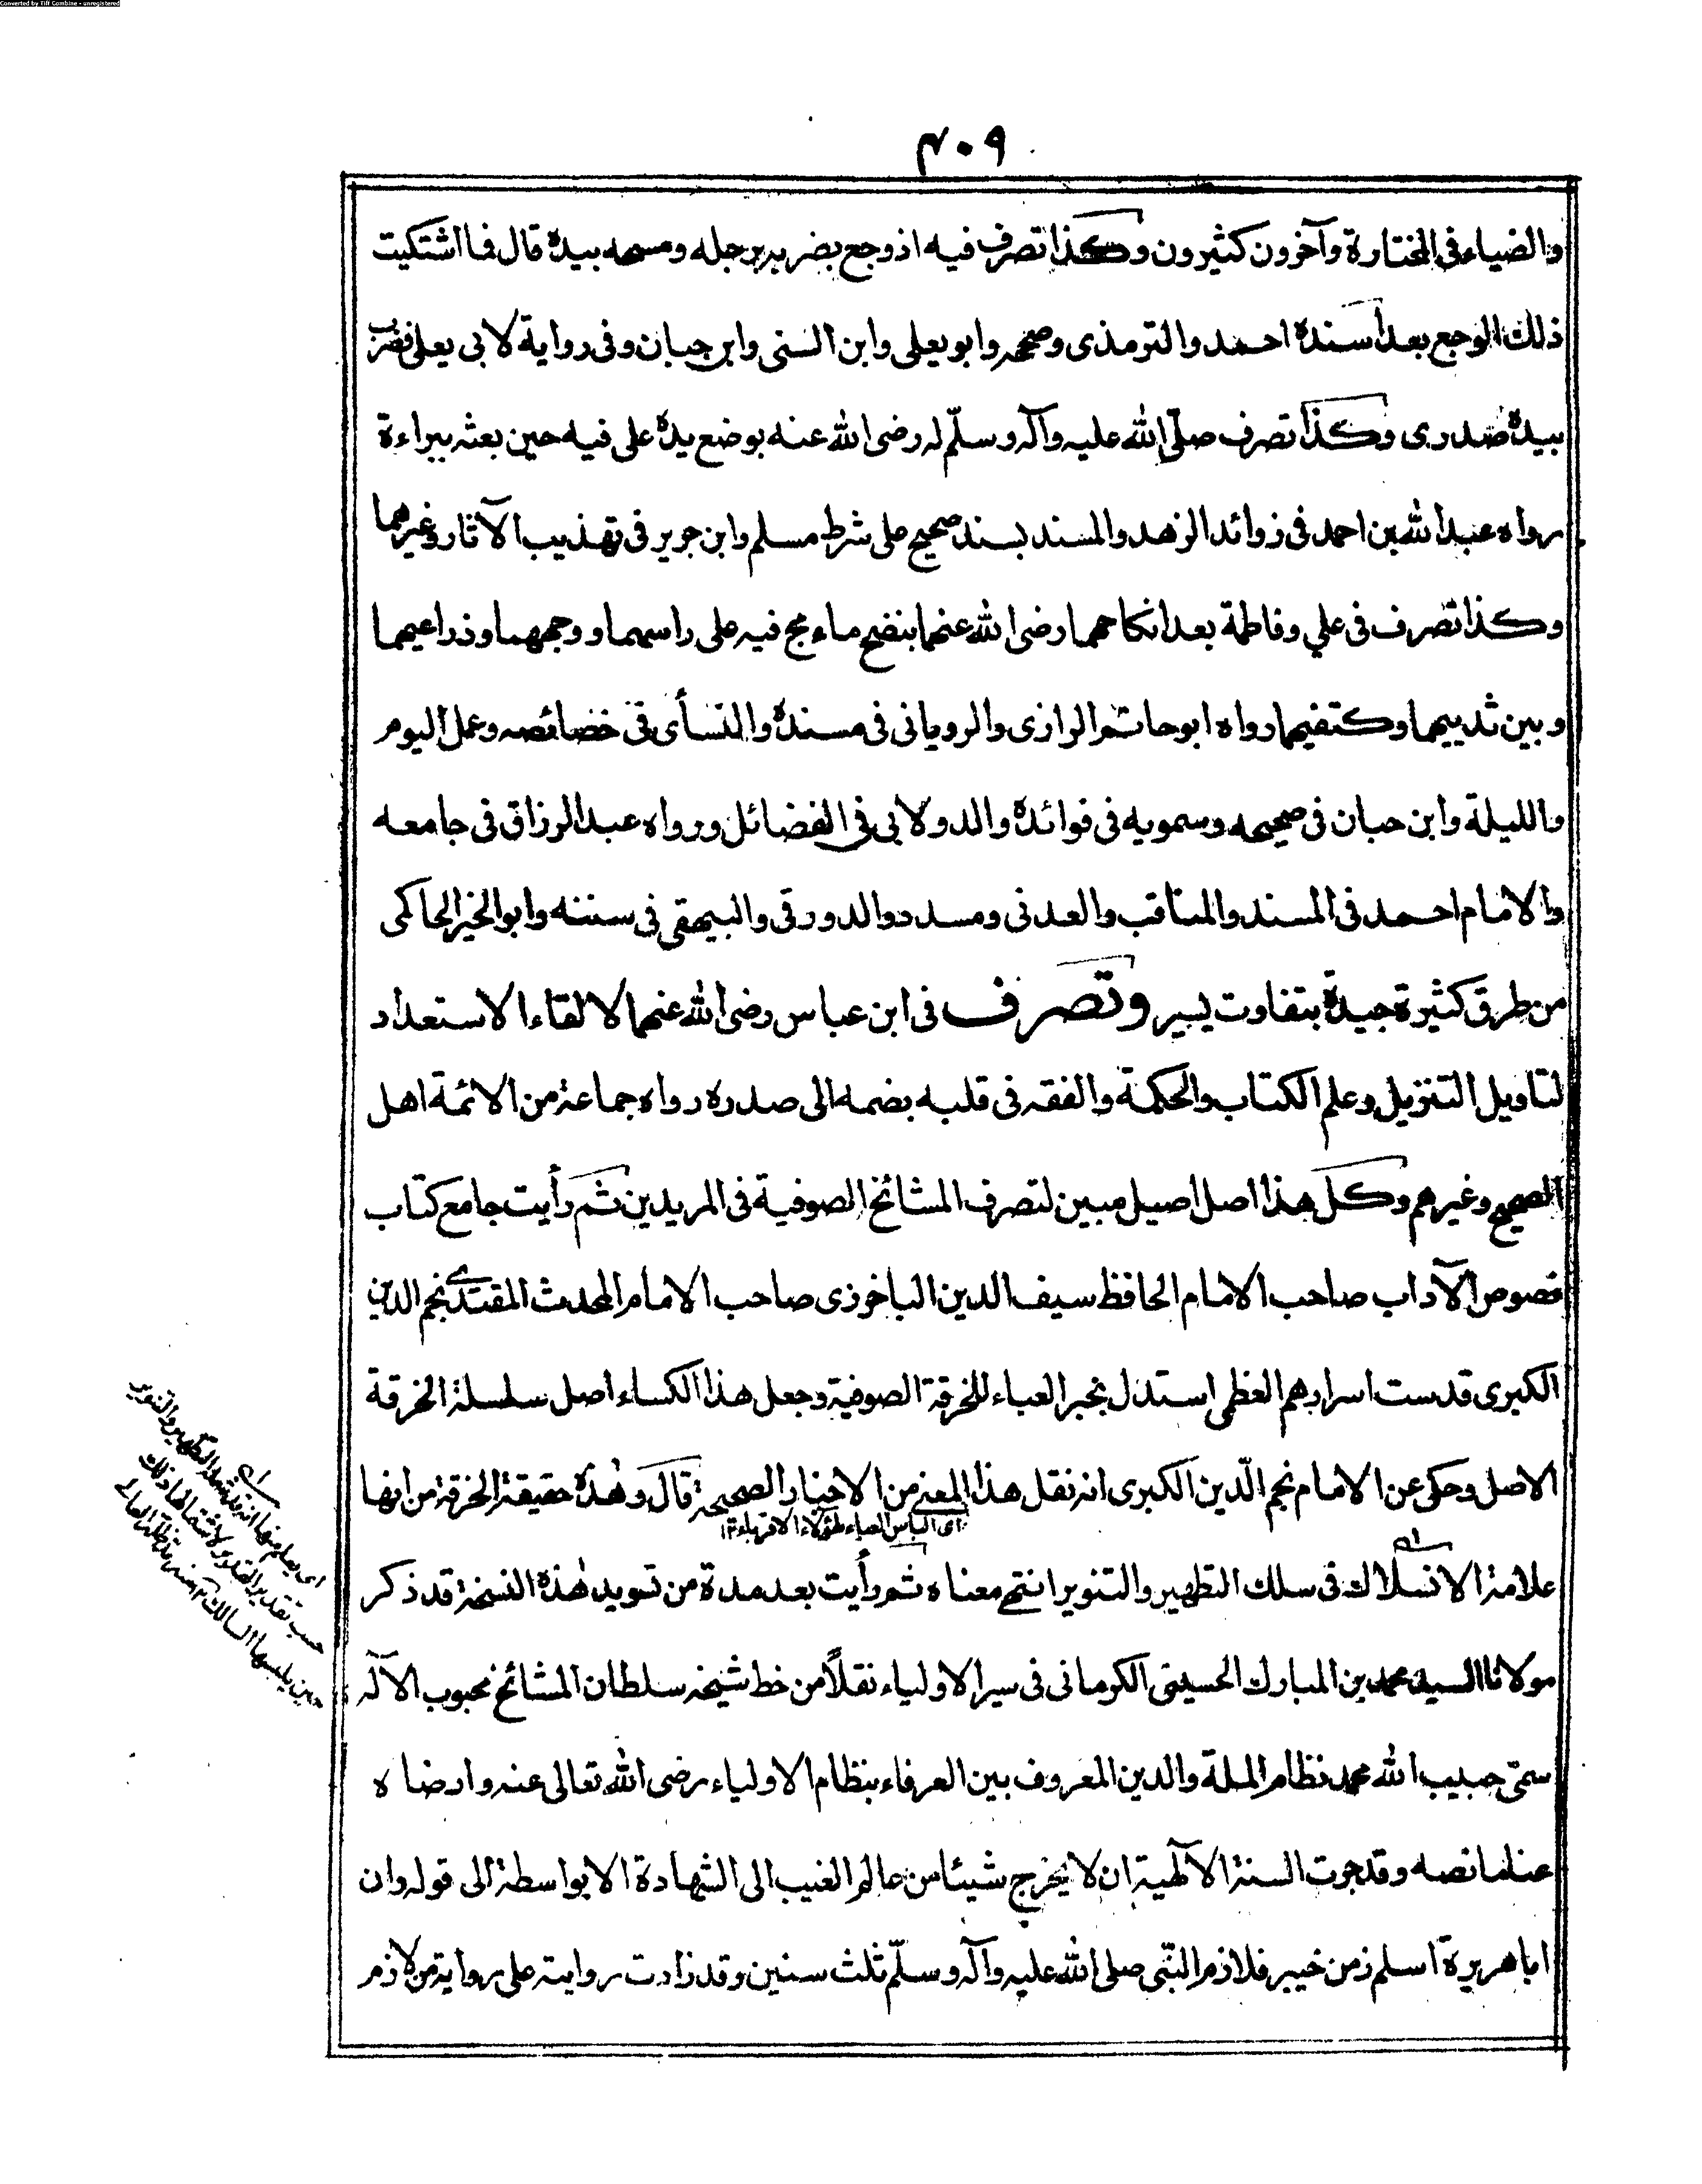 Converted by Tiff Combine - unregistered
۴۰۹
والضياء فى المختارة وآخرون كثيرون وكذا تصرف فيه اذ وجع بضربه برجله ومسحه بيده قال فما اشتكيت
ذلك الوجع بعد اسنده احمد والترمذى وصححه وابو يعلى وابن السنى وابن حبان وفى رواية لابى يعلى فضرب
بيده صدرى وكذا تصرف صلى الله عليه وآله وسلّم له رضى الله عنه بوضع يده على فيه حين بعثه ببراءة
رواه عبد الله بن احمد فى زوائد الزهد والمسند بسند صحيح على شرط مسلم وابن جرير فى تهذيب الآثار وغيرهما
وكذا تصرف فى علي وفاطمة بعد انكاحهما رضى الله عنهما بنضح ماء مج فيه على راسهما ووجههما وذراعيهما
وبين ثدييهما وكتفيهما رواه ابو حاتم الرازى والرويانى فى مسنده والنسأى فى خصائصه وعمل اليوم
والليلة وابن حبان فى صحيحه وسمويه فى فوائده والدولابى فى الفضائل ورواه عبد الرزاق فى جامعه
والامام احمد فى المسند والمناقب والعدنى ومسدد والدورقى والبيهقى فى سننه وابو الخير الحاكمى
من طرق كثيرة جيدة بتفاوت يسير وتصرف فى ابن عباس رضى الله عنهما لالقاء الاستعداد
لتاويل التنزيل وعلم الكتاب والحكمة والفقه فى قلبه بضمه الى صدره رواه جماعة من الائمة اهل
الصحيح وغيرهم وكل هذا اصل اصيل مبين لتصرف المشائخ الصوفية فى المريدين ثم رأيت جامع كتاب
فصوص الآداب صاحب الامام الحافظ سيف الدين الباخوزى صاحب الامام المحدث المقتدى نجم الدين
الكبرى قدست اسرارهم العظمى استدل بخبر العباء للخرقة الصوفية وجعل هذا الكساء اصل سلسلة الخرقة
الاصل وحكى عن الامام نجم الدّين الكبرى انه نقل هذا المعنى من الاخبار الصحيحة قال وهذه حقيقة الخرقة من انها
اى الباس العباء لهؤلاء الاقرباء ١٢
علامة الانسلاك فى سلك التطهير والتنوير انتهى معناه ثم رأيت بعد مدة من تسويد هذه النسخة قد ذكر
مولانا السيد محمد بن المبارك الحسينى الكرمانى فى سير الاولياء نقلاً من خط شيخه سلطان المشائخ محبوب الآله
سمىّ حبيب الله محمد نظام الملة والدين المعروف بين العرفاء بنظام الاولياء رضى الله تعالى عنه وارضاه
عنا ما نصه وقد جرت السنة الآلهية ان لا يخرج شيئا من عالم الغيب الى الشهادة الا بواسطة الى قوله وان
ابا هريرة اسلم زمن خيبر فلازم النّبى صلى الله عليه وآله وسلّم ثلث سنين وقد زادت روايته على رواية من لازم
اى يعلم منها انه قد والتطهير والتنوير
حسب تقدير القدير
حين يلبسها السالك ١٢ منه مد ظله العالى